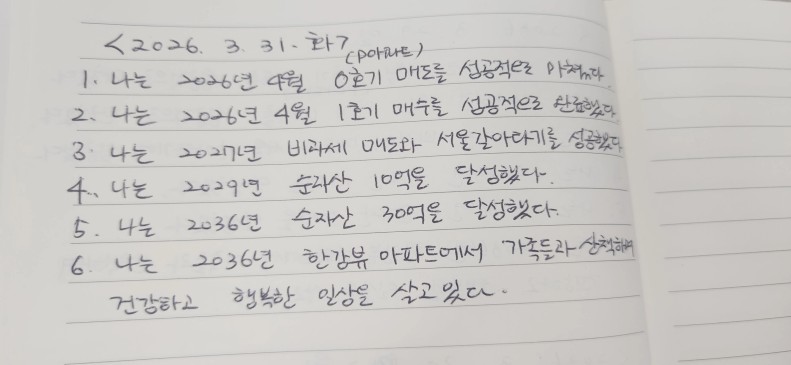 <2026. 3. 31. 화>
(P아파트)
1. 나는 2026년 4월 0호기 매도를 성공적으로 마쳤다.
2. 나는 2026년 4월 1호기 매수를 성공적으로 완료했다.
3. 나는 2027년 비과세 매도와 서울갈아타기를 성공했다
4. 나는 2029년 순자산 10억을 달성했다.
5. 나는 2036년 순자산 30억을 달성했다.
6. 나는 2036년 한강뷰 아파트에서 가족들과 산책하며
건강하고 행복한 일상을 살고있다.